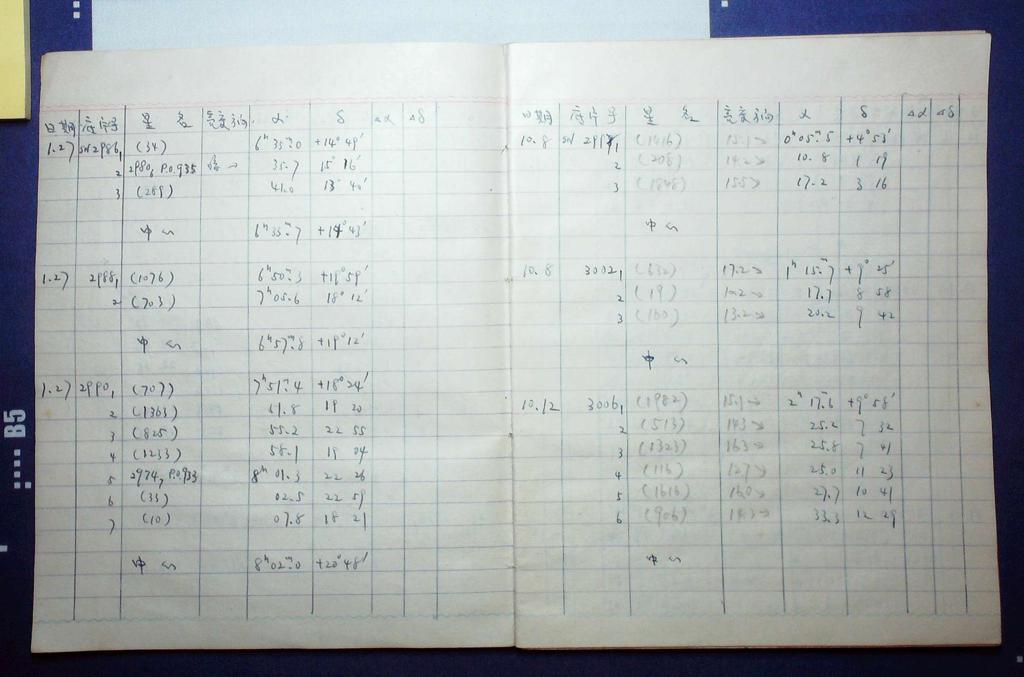 日期 底片号 星名 亮度 α δ Δα Δδ
1.27 SN 2986₁ (34) 6ʰ 35ᵐ.0 +14° 49′
2 2980, P.O.935 35.7 15° 16′
3 (289) 41.0 13° 40′
中心 6ʰ 35ᵐ.7 +14° 43′
1.27 2988₁ (1076) 6ʰ 50ᵐ.3 +19° 59′
2 (703) 7ʰ 05.6 18° 12′
中心 6ʰ 57ᵐ.8 +19° 12′
1.27 2990₁ (707) 7ʰ 51ᵐ.4 +18° 24′
2 (1363) 51.8 19 20
3 (825) 55.2 22 55
4 (1233) 58.1 19 04
5 2974, P.O.933 8ʰ 01.3 22 26
6 (33) 02.5 22 59
7 (10) 07.8 18 21
中心 8ʰ 02ᵐ.0 +20° 48′
日期 底片号 星名 亮度 α δ Δα Δδ
10.8 SN (1416) 15.1 0ʰ 05ᵐ.5 +4° 53′
2 (208) 14.2 10.8 1 19
3 (1848) 15.5 17.2 3 16
中心
10.8 3002₁ (632) 17.2 1ʰ 15ᵐ.7 +9° 25′
2 (19) 17.7 8 58
3 (100) 13.2 20.2 9 42
中心
10.12 3006₁ (1982) 15.1 2ʰ 17ᵐ.6 +9° 58′
2 (513) 14.3 25.2 7 32
3 (1323) 16.3 25.8 7 41
4 (116) 12.7 25.0 11 23
5 (1616) 16.0 27.7 10 41
6 (906) 14.3 33.3 12 29
中心
B5